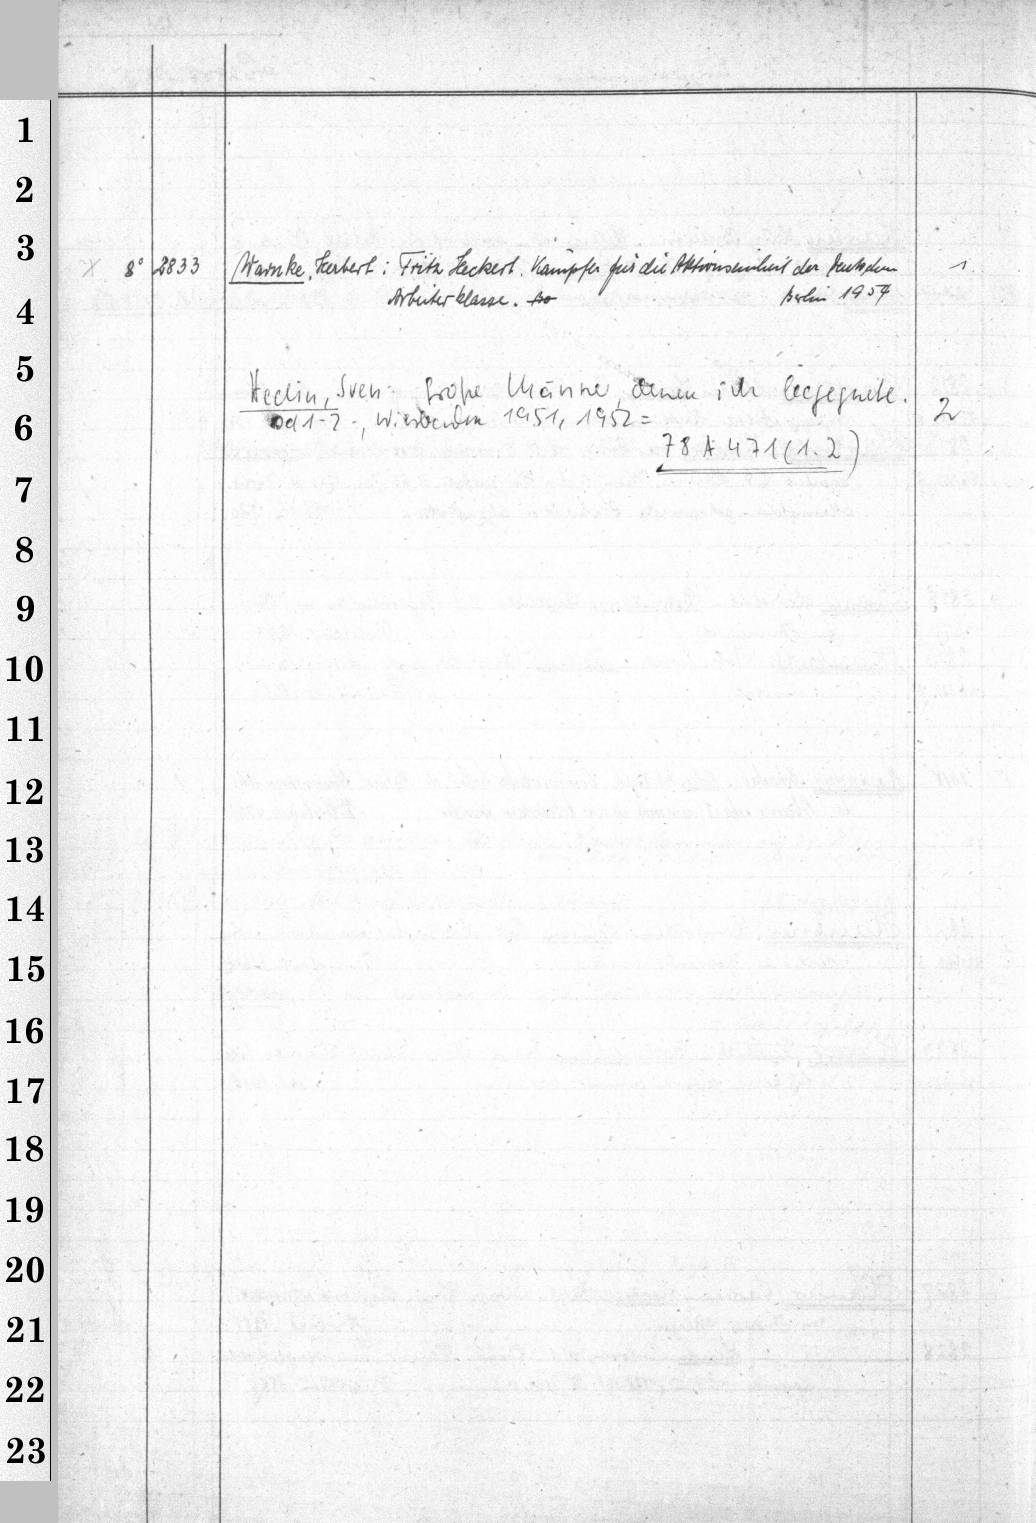 1
2
3
X 8° 2833 Warnke, Herbert: Fritz Heckert. Kämpfer für die Aktionseinheit der deutschen 1
4
Arbeiterklasse. Berlin 1954
5
Hedin, Sven: Große Männer, denen ich begegnete.
6
Bd 1-2-, Wiesbaden 1951, 1952 = 2
78 A 471 (1.2)
7
8
9
10
11
12
13
14
15
16
17
18
19
20
21
22
23